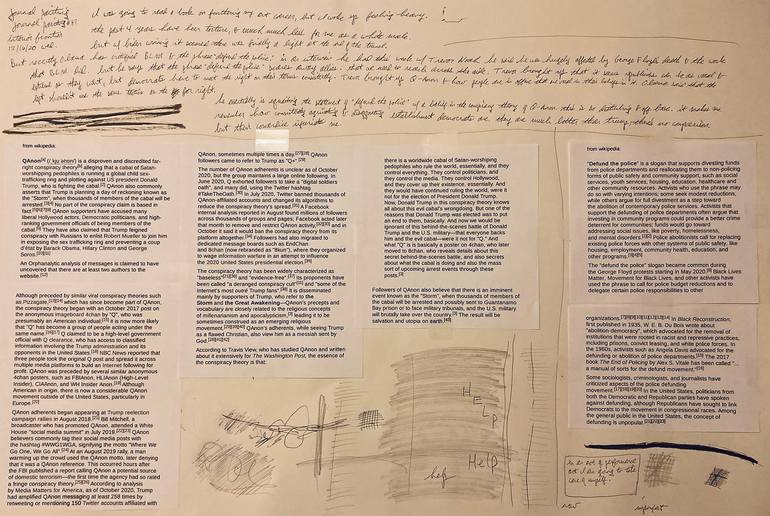 Journal painting
Journal painting #31
interior frontier
12/16/20 wed.
I was going to read a book on functioning my art career, but I woke up feeling heavy.
the past 4 years have been torture, & much much less for me as a white male.
but w/ biden winning it seemed there was finally a light at the end of the tunnel.
But recently obama has critiqued BLM & the phrase "defund the police" in an interview he had this week w/ Trevor Noah. he said he was hugely affected by George Floyd's death & the work
that BLM did. but he says that the phrase "defund the police" pushes away allies - that we need to reach across the aisle. Trevor brought up that it seems republicans can be as
extreme as they want, but democrats have to meet the right on their terms consistently. Trevor brought up Q-Anon & how people are in office who
left shouldn't use the same tactics as the far right.
he essentially is equating the statement of "defund the police" w/ a belief in the conspiracy theory of Q-Anon. this is so
remember how consistently
but their cowardice infuriates me.
from wikipedia:
QAnon[a] (/ˌkjuːəˈnɒn/) is a disproven and discredited far-
right conspiracy theory[b] alleging that a cabal of Satan-
worshipping pedophiles is running a global child sex-
trafficking ring and plotting against US president Donald
Trump, who is fighting the cabal.[2] QAnon also commonly
asserts that Trump is planning a day of reckoning known as
the "Storm", when thousands of members of the cabal will be
arrested.[3][4] No part of the conspiracy claim is based in
fact.[7][8][9] QAnon supporters have accused many
liberal Hollywood actors, Democratic politicians, and high-
ranking government officials of being members of the
cabal.[6] They have also claimed that Trump feigned
conspiracy with Russians to enlist Robert Mueller to join him
in exposing the sex trafficking ring and preventing a coup
d'état by Barack Obama, Hillary Clinton and George
Soros.[10][11]
An Orphanalytic analysis of messages is claimed to have
uncovered that there are at least two authors to the
website.[12]
Although preceded by similar viral conspiracy theories such
as Pizzagate,[13][14] which has since become part of QAnon,
the conspiracy theory began with an October 2017 post on
the anonymous imageboard 4chan by "Q", who was
presumably an American individual;[15] it is now more likely
that "Q" has become a group of people acting under the same
name.[16][17] Q claimed to be a high-level government
official with Q clearance, who has access to classified
information involving the Trump administration and its
opponents in the United States.[18] NBC News reported that
three people took the original Q post and spread it across
multiple media platforms to build an Internet following for
profit. QAnon was preceded by several similar anonymous
4chan posters, such as FBIAnon, HLIAnon (High-Level
Insider), CIAAnon, and WH Insider Anon.[19] Although
American in origin, there is now a considerable QAnon
movement outside of the United States, particularly in
Europe.[22]
QAnon adherents began appearing at Trump reelection
campaign rallies in August 2018.[21] Bill Mitchell, a
broadcaster who has promoted QAnon, attended a White
House "social media summit" in July 2019.[22][23] QAnon
believers commonly tag their social media posts with
the hashtag #WWG1WGA, signifying the motto "Where We
Go One, We Go All".[24] At an August 2019 rally, a man
warming up the crowd used the QAnon motto, later denying
that it was a QAnon reference. This occurred hours after
the FBI published a report calling QAnon a potential source
of domestic terrorism—the first time the agency had so rated
a fringe conspiracy theory.[25][26] According to analysis
by Media Matters for America, as of October 2020, Trump
had amplified QAnon messaging at least 258 times by
retweeting or mentioning 150 Twitter accounts affiliated with
QAnon, sometimes multiple times a day.[27][28] QAnon
followers came to refer to Trump as "Q+".[29]
The number of QAnon adherents is unclear as of October
2020, but the group maintains a large online following. In
June 2020, Q exhorted followers to take a "digital soldiers
oath", and many did, using the Twitter hashtag
#TakeTheOath.[30] In July 2020, Twitter banned thousands of
QAnon-affiliated accounts and changed its algorithms to
reduce the conspiracy theory's spread.[31] A Facebook
internal analysis reported in August found millions of followers
across thousands of groups and pages; Facebook acted later
that month to remove and restrict QAnon activity,[32][33] and in
October it said it would ban the conspiracy theory from its
platform altogether.[34] Followers had also migrated to
dedicated message boards such as EndChan
and 8chan (now rebranded as "8kun"), where they organized
to wage information warfare in an attempt to influence
the 2020 United States presidential election.[35]
The conspiracy theory has been widely characterized as
"baseless"[36] and "evidence-free".[37] Its proponents have
been called "a deranged conspiracy cult"[31] and "some of the
Internet's most outré Trump fans".[38] It is disseminated
mainly by supporters of Trump, who refer to the
Storm and the Great Awakening—QAnon's precepts and
vocabulary are closely related to the religious concepts
of millenarianism and apocalypticism,[38] leading it to be
sometimes construed as an emerging religious
movement.[39][39][40] QAnon adherents, while seeing Trump
as a flawed Christian, also view him as a messiah sent by
God.[39][41][42]
According to Travis View, who has studied QAnon and
written about it extensively for The Washington Post, the essence of
the conspiracy theory is that:
there is a worldwide cabal of Satan-worshiping
pedophiles who rule the world, essentially, and they
control everything. They control politicians, and
they control the media. They control Hollywood,
and they cover up their existence, essentially. And
they would have continued ruling the world, were it
not for the election of President Donald Trump.
Now, Donald Trump in this conspiracy theory knows
all about this evil cabal's wrongdoing. But one of the
reasons that Donald Trump was elected was to put
an end to them, basically. And now we would be
ignorant of this behind-the-scenes battle of Donald
Trump and the U.S. military—that everyone backs
him and the evil cabal—were it not for "Q". And
what "Q" is is basically a poster on 4chan, who later
moved to 8chan, who reveals details about this
secret behind-the-scenes battle, and also secrets
about what the cabal is doing and also the mass
sort of upcoming arrest events through these
posts.[3]
Followers of QAnon also believe that there is an imminent
event known as the "Storm", when thousands of members of
the cabal will be arrested and possibly sent to Guantanamo
Bay prison or to face military tribunals, and the U.S. military
will brutally take over the country.[3] The result will be
salvation and utopia on earth.[43]
from wikipedia:
"Defund the police" is a slogan that supports divesting funds
from police departments and reallocating them to non-policing
forms of public safety and community support, such as social
services, youth services, housing, education, healthcare and
other community resources. Activists who use the phrase may
do so with varying intentions; some seek modest reductions,
while others argue for full divestment as a step toward
the abolition of contemporary police services. Activists that
support the defunding of police departments often argue that
investing in community programs could provide a better crime
deterrent for communities; funds would go toward
addressing social issues, like poverty, homelessness,
and mental disorders.[1][2] Police abolitionists call for replacing
existing police forces with other systems of public safety, like
housing, employment, community health, education, and
other programs.[3][4][5]
The "defund the police" slogan became common during
the George Floyd protests starting in May 2020.[6] Black Lives
Matter, Movement for Black Lives, and other activists have
used the phrase to call for police budget reductions and to
delegate certain police responsibilities to other
organizations.[7][8][9][10][11][12][13] In Black Reconstruction,
first published in 1935, W. E. B. Du Bois wrote about
"abolition-democracy", which advocated for the removal of
institutions that were rooted in racist and repressive practices,
including prisons, convict leasing, and white police forces. In
the 1960s, activists such as Angela Davis advocated for the
defunding or abolition of police departments.[15] The 2017
book The End of Policing by Alex S. Vitale has been called "...
a manual of sorts for the defund movement."[16]
Some sociologists, criminologists, and journalists have
criticized aspects of the police defunding
movement.[17][18][19][20] In the United States, politicians from
both the Democratic and Republican parties have spoken
against defunding, although Republicans have sought to link
Democrats to the movement in congressional races. Among
the general public in the United States, the concept of
defunding is unpopular.[21][22][23]
HELP
help
Help
in an act of performance
art I am going to take
care of myself.